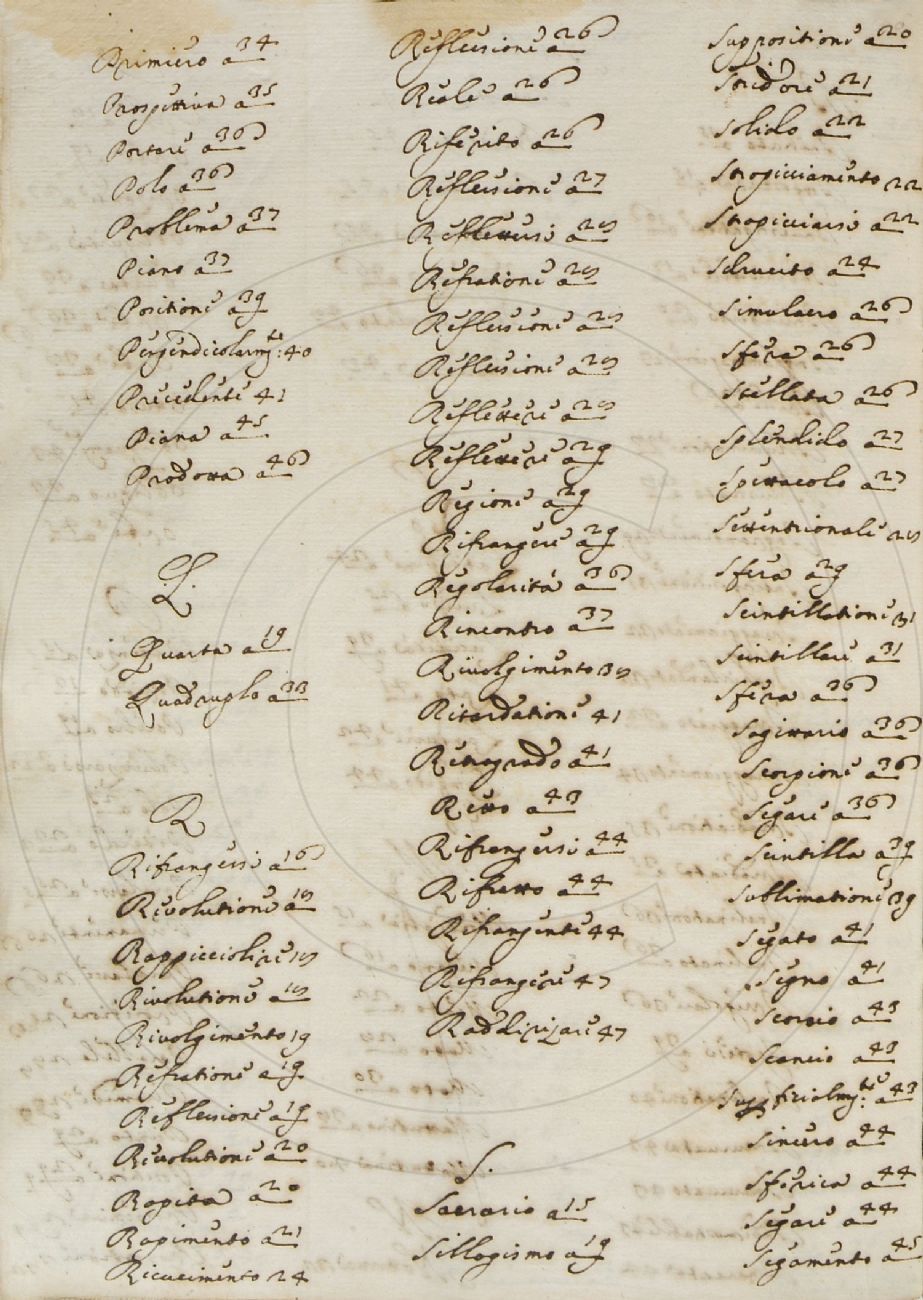 Primiero a 34
Prospettiva a 35
Portare a 36
Polo a 36
Problema a 37
Piano a 37
Positione a 39
Perpendicolarmte: 40
Precedente 41
Piana a 45
Prodotta a 46
Q.
Quarta a 19
Quadruplo a 33
R
Rifrangersi a 16
Rivolutione a 18
Rappicciolire 18
Rivolutione a 18
Rivolgimento 19
Refratione a 19
Reflessione a 19
Revolutione a 20
Rapita a 20
Rapimento a 21
Ricrescimento 24
Reflessione a 26
Reale a 26
Riferito a 26
Reflessione a 27
Reflettersi a 28
Refratione a 28
Reflessione a 28
Reflessione a 28
Reflettere a 28
Reflettere a 29
Regione a 29
Rifrangere a 29
Regolarità a 36
Rincontro a 37
Rivolgimento 38
Ritardatione 41
Retrogrado a 41
Retto a 43
Rifrangersi a 44
Rifratto a 44
Rifrangente 44
Rifrangere a 47
Raddirizzare 47
S.
Sacrario a 15
Sillogismo a 19
Suppositione a 20
Stridore a 21
Solido a 22
Stropicciamento 22
Stropicciarsi a 22
Sdrucito a 24
Simulacro a 26
Sfera a 26
Stellata a 26
Splendido a 27
Spettacolo a 27
Settentrionale 28
Sfera a 29
Scintillatione 31
Scintillare a 31
Sfera a 36
Sagittario a 36
Scorpione a 36
Segare a 36
Scintilla a 39
Sublimatione 39
Segato a 41
Segno a 41
Scorcio a 43
Scancio a 43
Supficialmte: a 43
Sincero a 44
Sferica a 44
Segare a 44
Segamento a 45